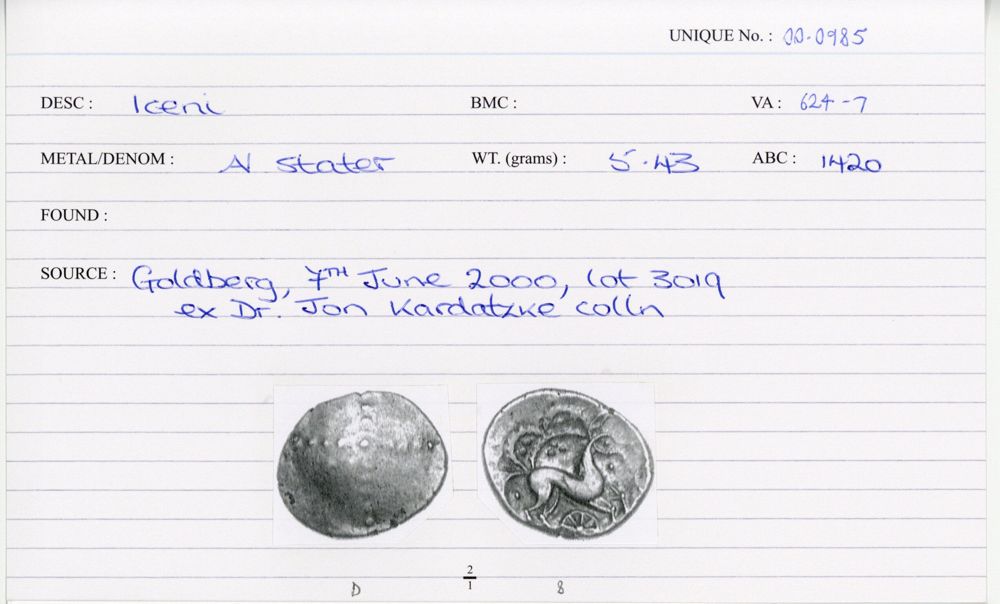 UNIQUE No. : 00.0985
DESC : Iceni BMC : VA : 624-7
METAL/DENOM : AV Stater WT. (grams) : 5.43 ABC : 1420
FOUND :
SOURCE : Goldberg, 7TH June 2000, lot 3019
ex Dr. Jon Kardatzke colln
2
1
D 8